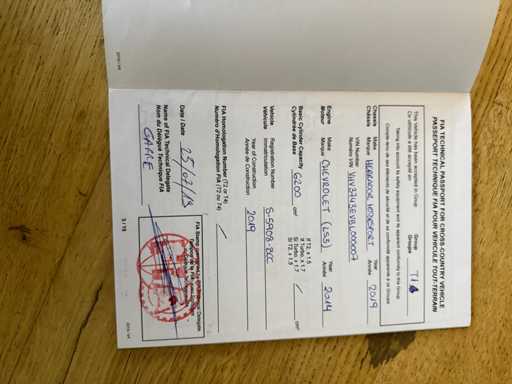 FIA TECHNICAL PASSPORT FOR CROSS-COUNTRY VEHICLE
PASSEPORT TECHNIQUE FIA POUR VÉHICULE TOUT-TERRAIN
This Vehicle has been accepted in Group
Ce véhicule a été accepté en
Group
Groupe
Taking into account its safety equipment and its apparent conformity to this Group
Compte tenu de ses éléments de sécurité et de sa conformité apparente à ce Groupe
Chassis Make
Châssis Marque
MOTORSPORT
Year
Année
2019
VIN Number
Numéro VIN
Engine Make
Moteur Marque
CHEVROLET (LS3)
Year
Année
2014
Basic Cylinder Capacity
Cylindrée de Base
6200 cm³
If T2, x 1.5
If Turbo, x 1.7
Si Turbo, x 1.7
Si T2, x 1.5
cm³
Vehicle Registration Number
Véhicule Immatriculation
Year of Construction
Année de Construction
2019
FIA Homologation Number (T2 or T4)
Numéro d'Homologation FIA (T2 ou T4)
Date / Date
25/07/19
Name of FIA Technical Delegate
Nom du Délégué Technique FIA
3 / 15